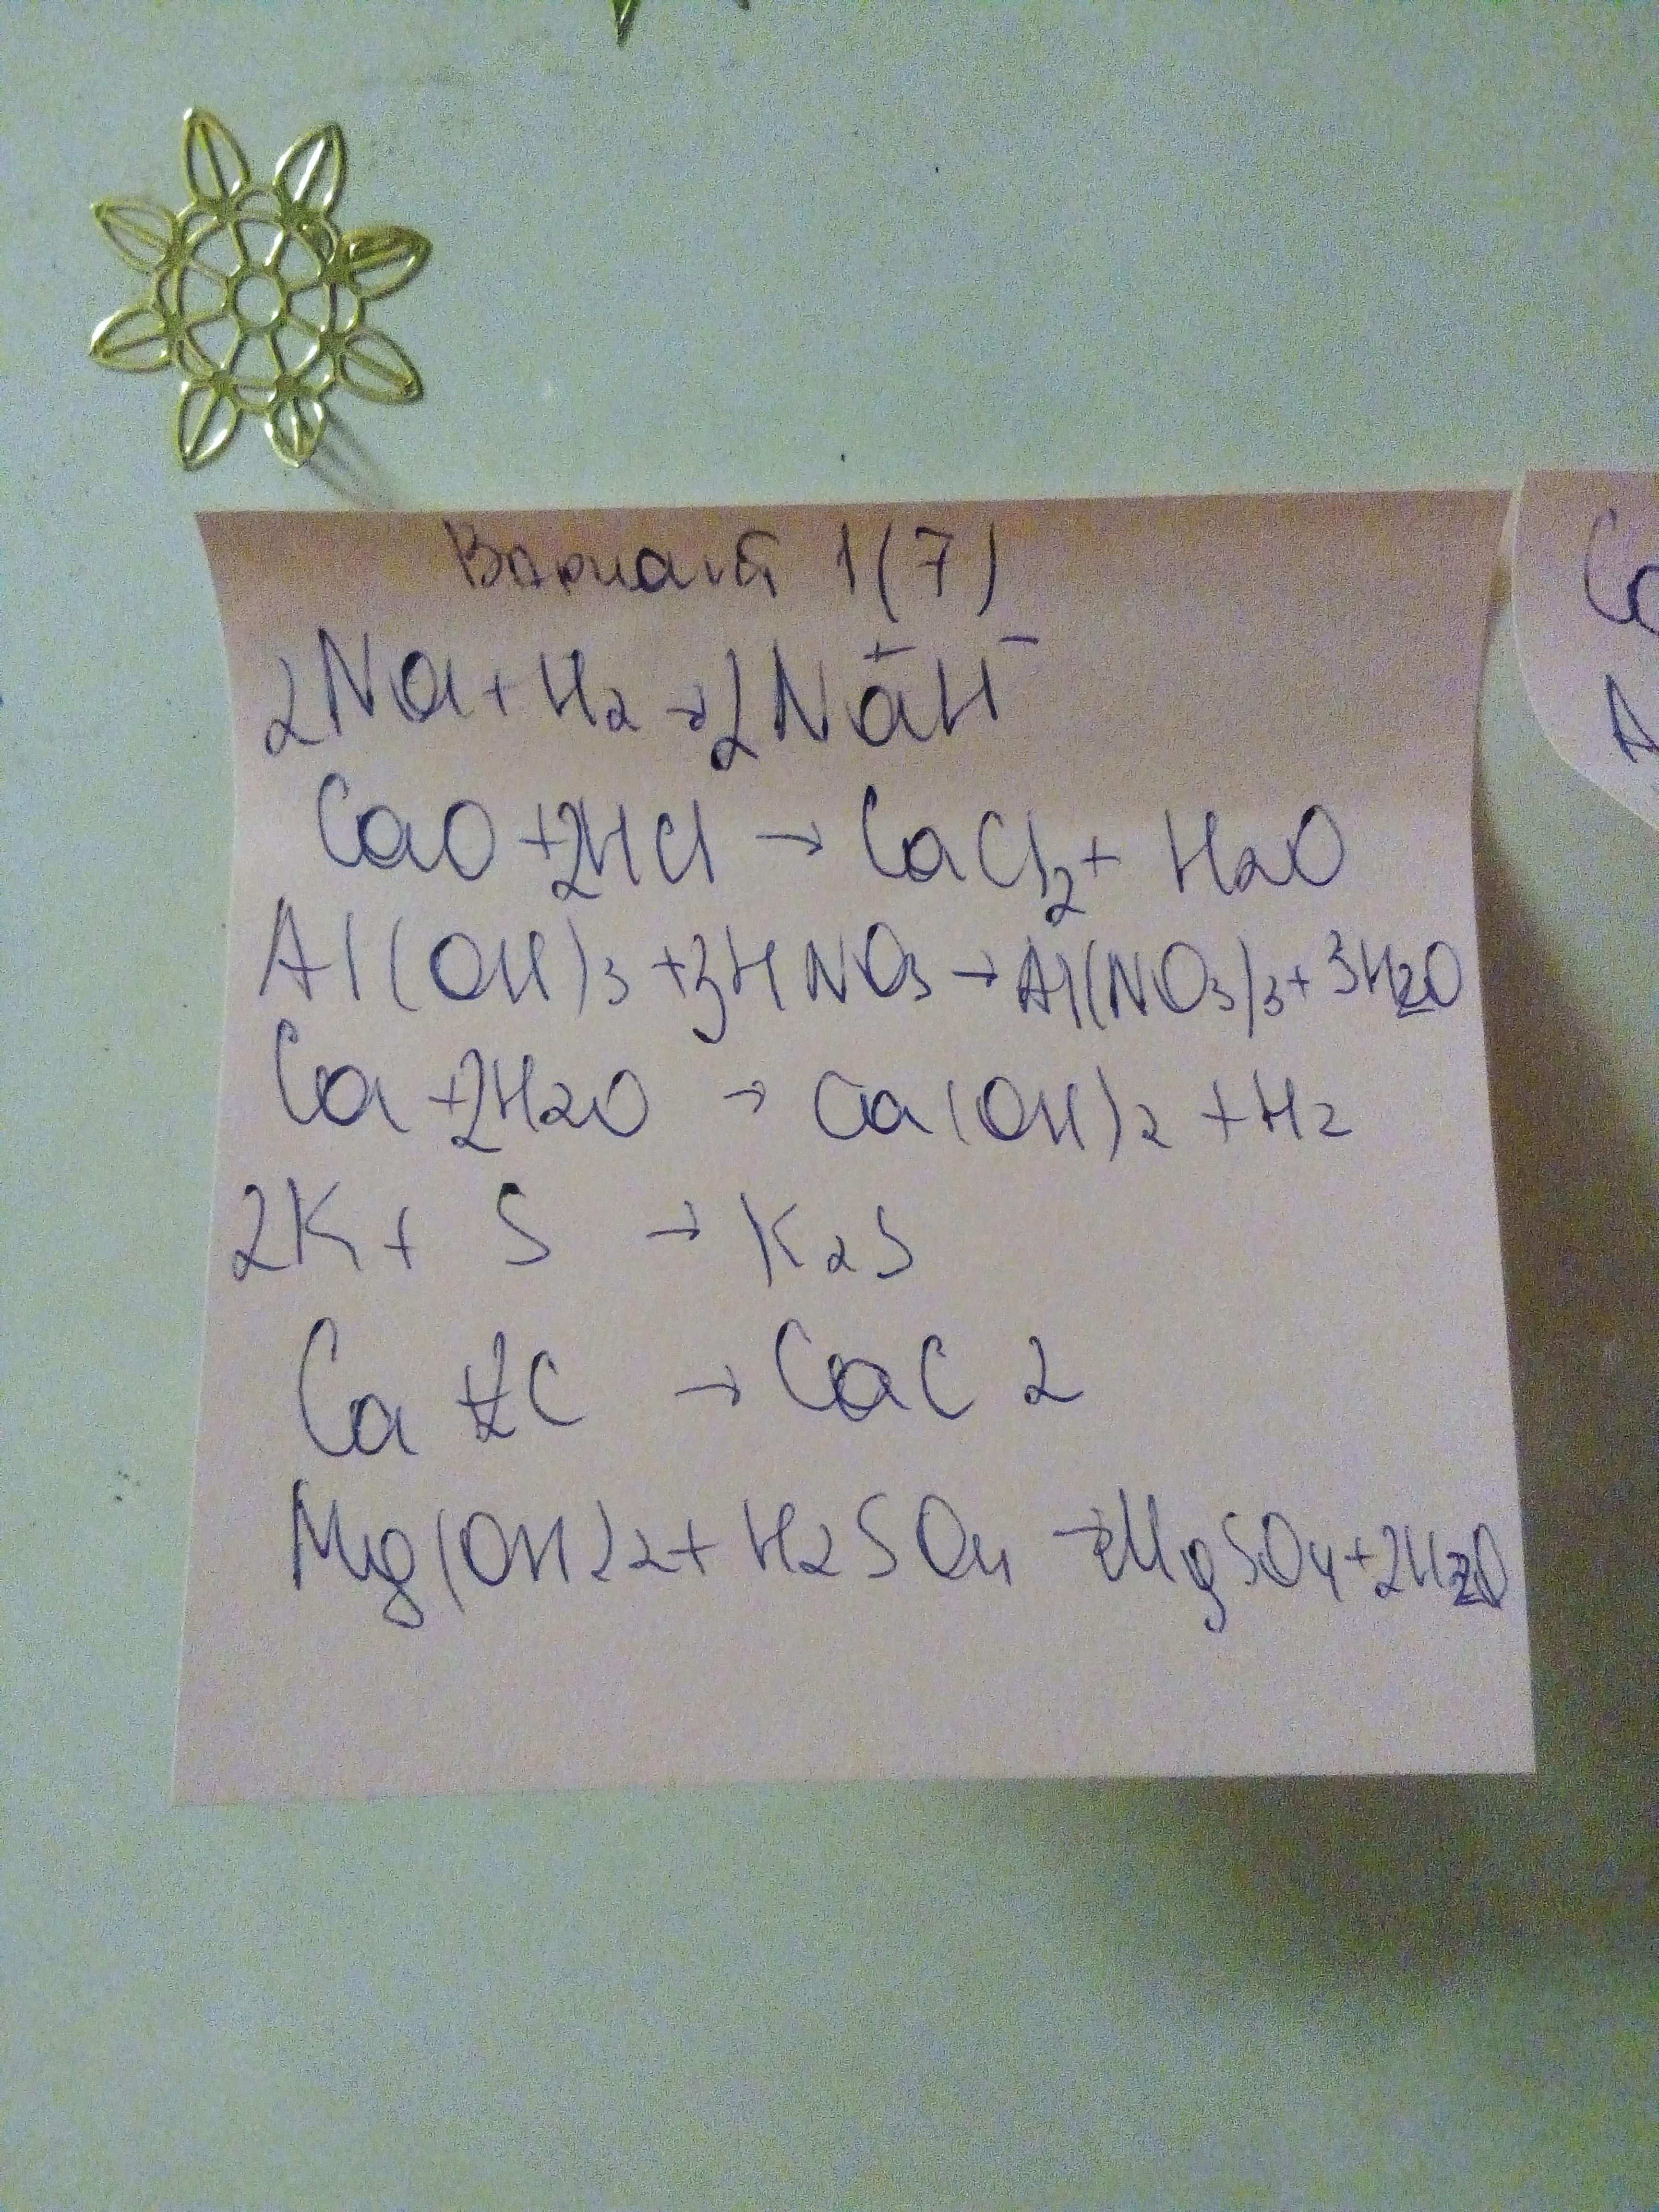 Вариант 1(7)
2Na + H2 → 2Na⁺H⁻
CaO + 2HCl → CaCl2 + H2O
Al(OH)3 + 3HNO3 → Al(NO3)3 + 3H2O
Ca + 2H2O → Ca(OH)2 + H2
2K + S → K2S
Ca + 2C → CaC2
Mg(OH)2 + H2SO4 → MgSO4 + 2H2O